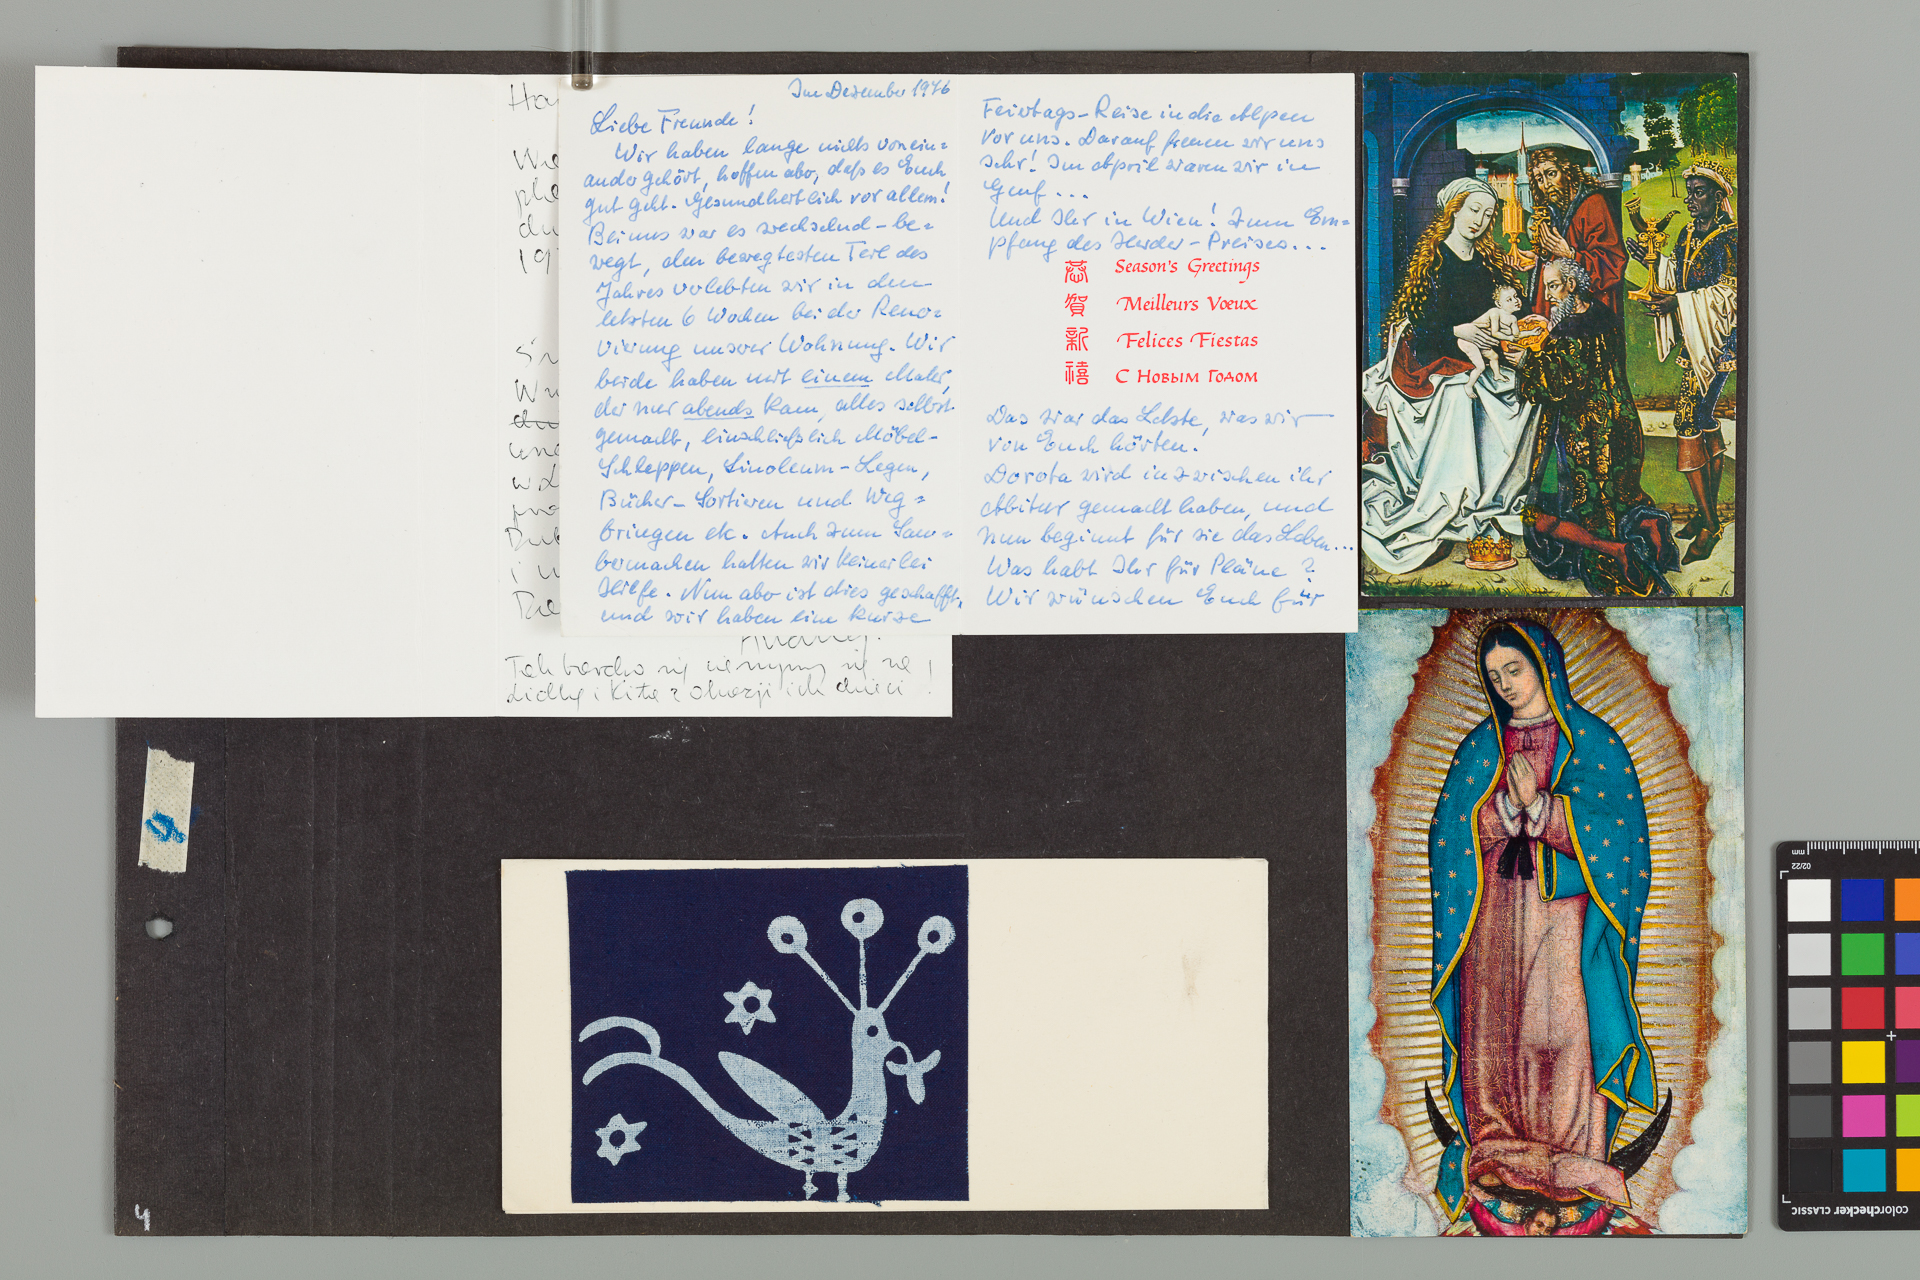 Im Dezember 1976
Liebe Freunde!
Wir haben lange nichts vonein=
ander gehört, hoffen aber, daß es Euch
gut geht. Gesundheitlich vor allem!
Bei uns war es wechselnd - be=
wegt, den bewegtesten Teil des
Jahres verlebten wir in den
letzten 6 Wochen bei der Reno=
vierung unserer Wohnung. Wir
beide haben mit einem Maler,
der nur abends kam, alles selbst
gemacht, einschließlich Möbel-
Schleppen, Linoleum-Legen,
Bücher-Sortieren und Weg=
bringen etc. Auch zum Sau=
bermachen hatten wir keinerlei
Hilfe. Nun aber ist dies geschafft,
und wir haben eine kurze
Feiertags-Reise in die Alpen
vor uns. Darauf freuen wir uns
sehr! Im April waren wir in
Genf ...
Und Ihr in Wien! Zum Em=
pfang des Herder-Preises...
恭賀新禧
Season's Greetings
Meilleurs Vœux
Felices Fiestas
С Новым Годом
Das war das Letzte, was wir
von Euch hörten.
Dorota wird inzwischen ihr
Abitur gemacht haben, und
nun beginnt für sie das Leben...
Was habt Ihr für Pläne?
Wir wünschen Euch für
Tak bardzo się
i Kitę z okazji ich dzieci!
4
mm
02/22
colorchecker CLASSIC